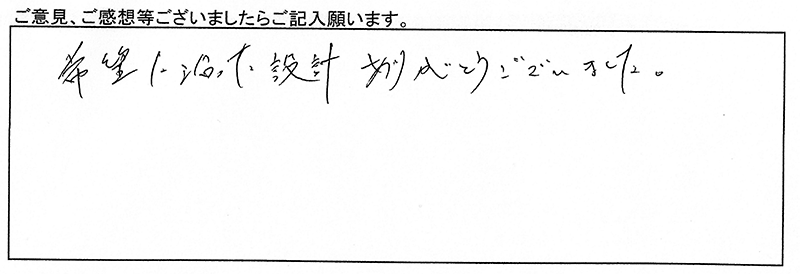 ご意見、ご感想等ございましたらご記入願います。
希望に沿った設計ありがとうございました。